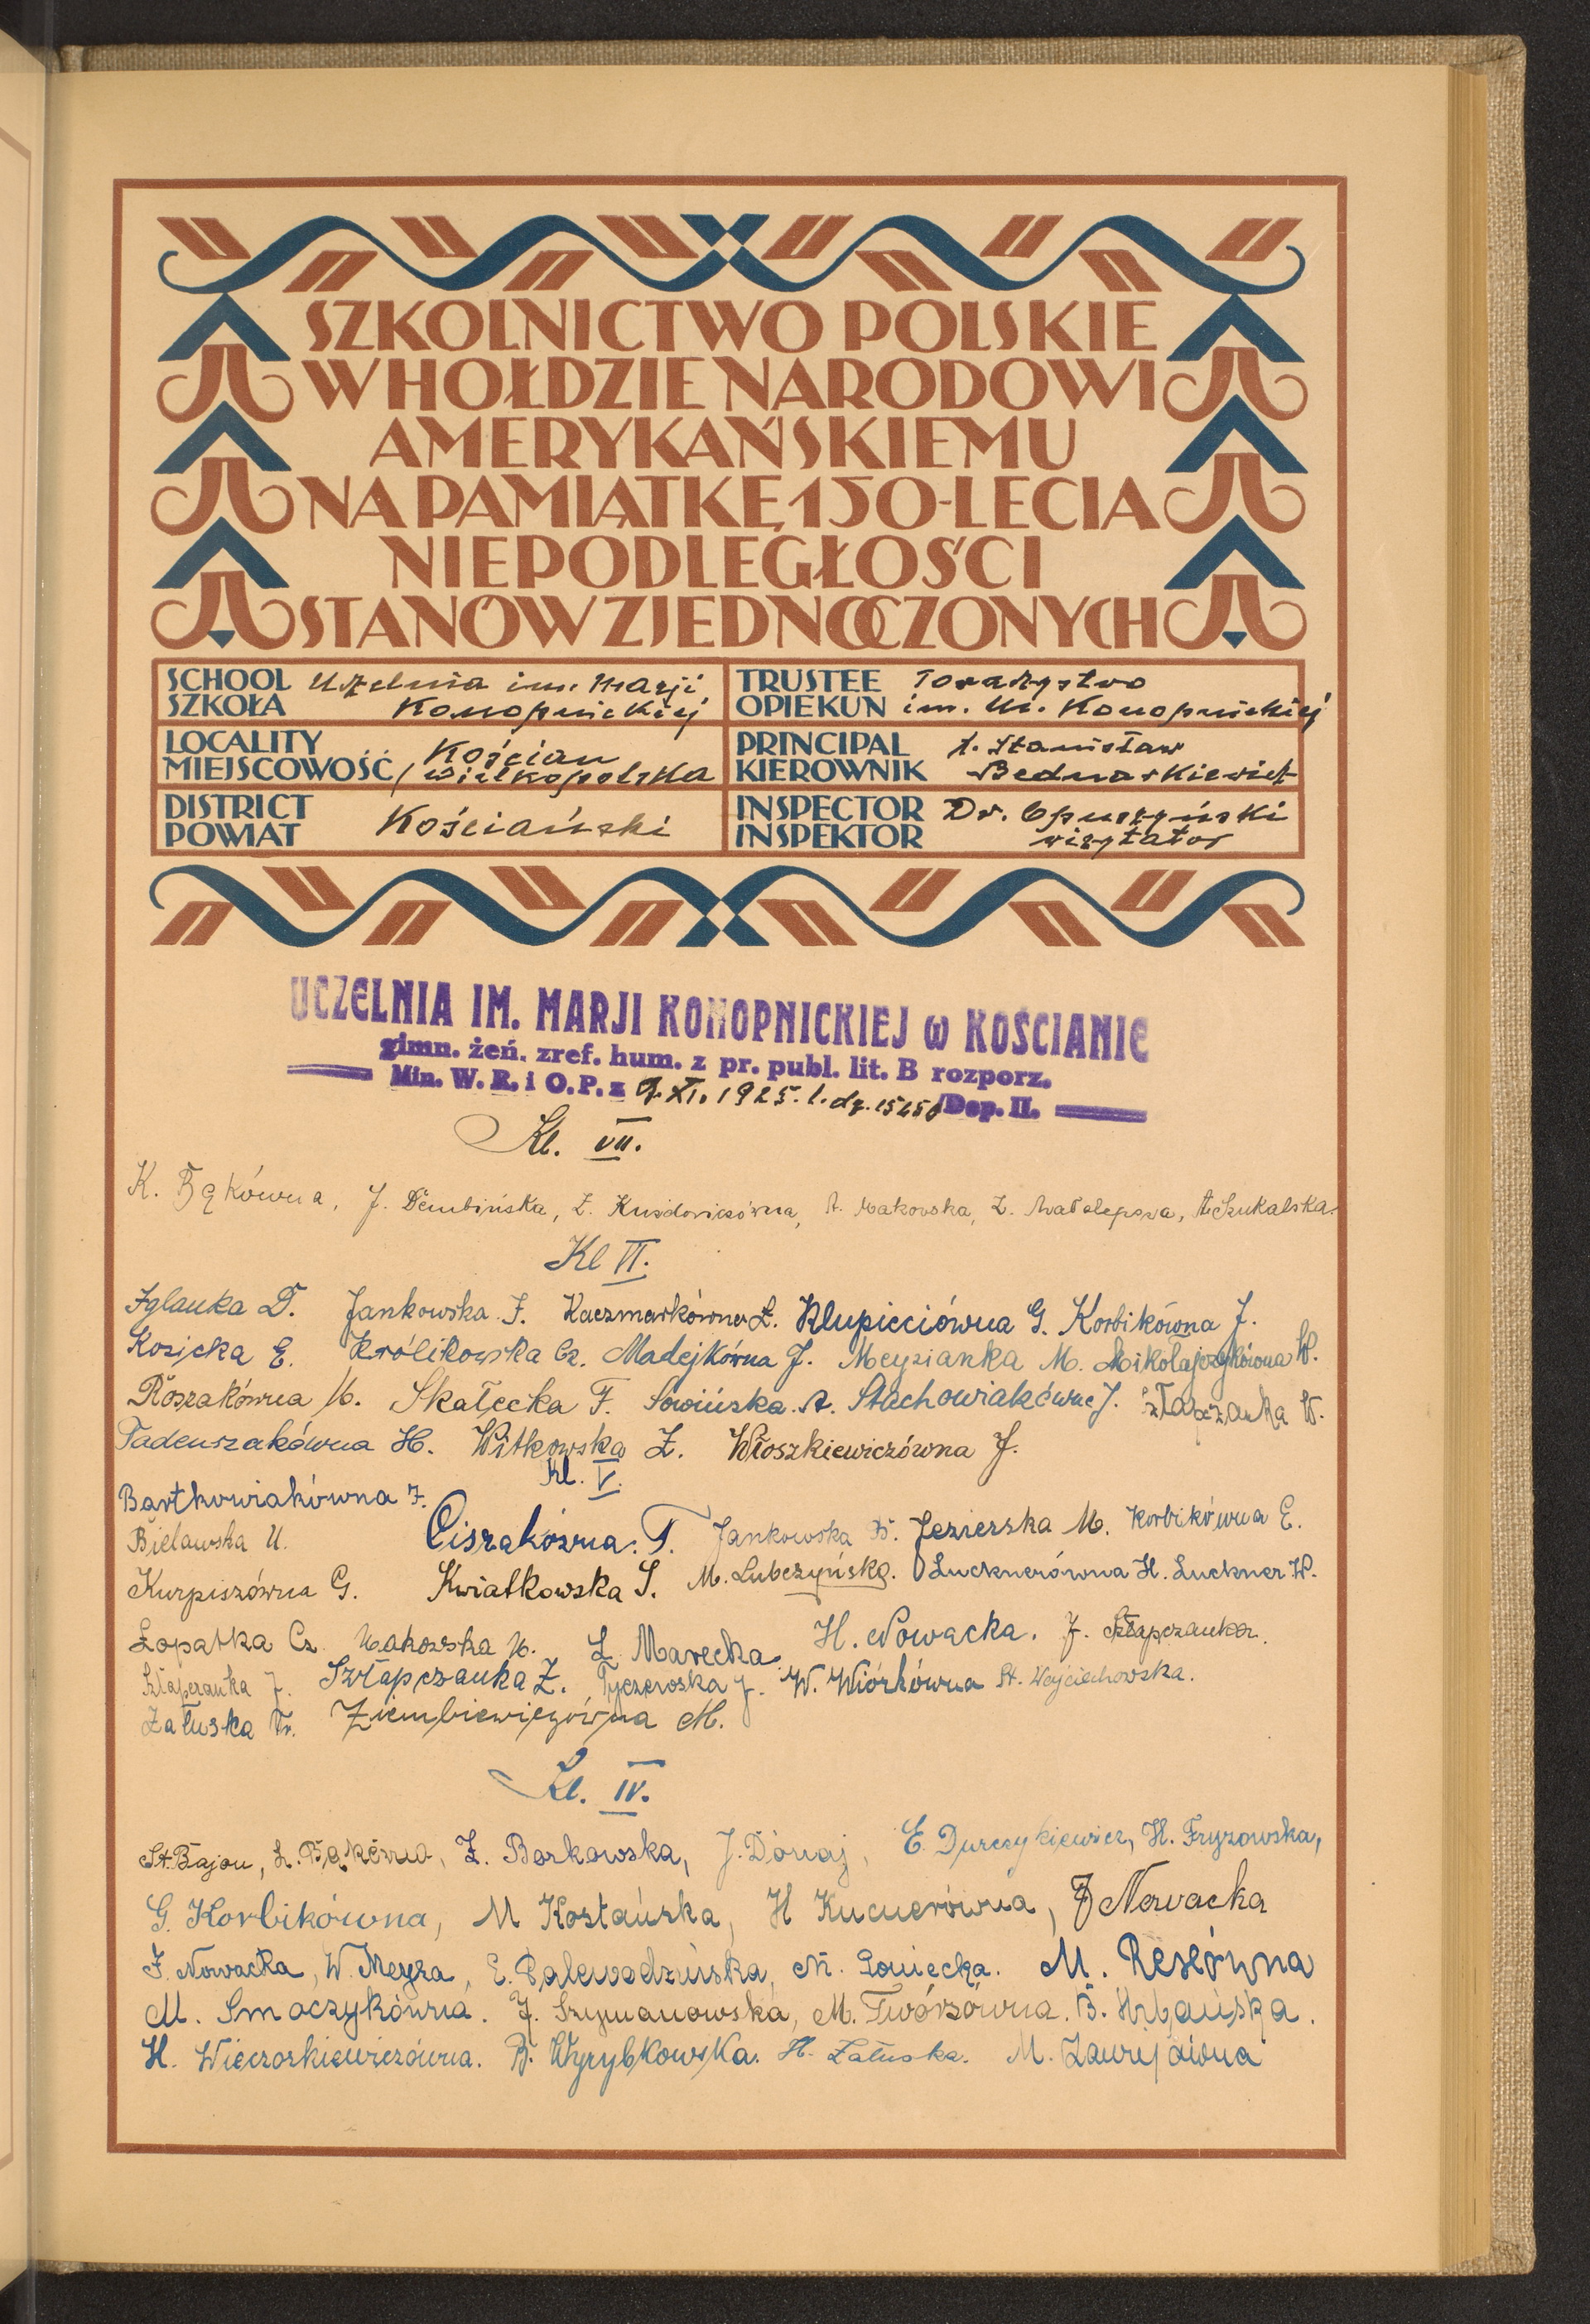 SZKOLNICTWO POLSKIE
W HOŁDZIE NARODOWI
AMERYKAŃSKIEMU
NA PAMIĄTKĘ 150-LECIA
NIEPODLEGŁOŚCI
STANÓW ZJEDNOCZONYCH
SCHOOL SZKOŁA Uczelnia im. Marji Konopnickiej
TRUSTEE OPIEKUN Towarzystwo im. M. Konopnickiej
LOCALITY MIEJSCOWOŚĆ Kościan / Wielkopolska
PRINCIPAL KIEROWNIK Stanisław Bednarkiewicz
DISTRICT POWIAT Kościański
INSPECTOR INSPEKTOR Dr. Opuszyński wizytator
UCZELNIA IM. MARJI KONOPNICKIEJ w KOŚCIANIE
gimn. żeń. zref. hum. z pr. publ. lit. B rozporz.
Min. W. R. i O. P. z 9. XI. 1925. l. dz. /Dep. II.
Kl. VII.
K. Bąkówna, J. Dembińska, Z. Kusdowiczówna, A. Makowska, Z. A. Szukalska.
Kl VI.
Iglauka D. Jankowska I. Kaczmarkówna Z. Klupieciówna G. Korbikówna J.
Kozicka E. Królikowska Cz. Madejkówna J. Meyzianka M. Mikołajczykówna W.
Roszakówna M. Skałecka F. Sowińska A. Stachowiakówna J. Szłapczanka W.
Tadeuszakówna H. Witkowska Z. Włoszkiewiczówna J.
Kl. V.
Bartkowiakówna I.
Bielawska U. Ciszakówna T. Jankowska B. Jezierska M. Korbikówna E.
Kurpiszówna G. Kwiatkowska S. M. Lubczyńska. Lucknerówna H. Luckner W.
Łopatka Cz. Makowska M. Z. Marecka H. Nowacka. J. Szłapczanka.
Szłapczanka J. Szłapczanka Z. Tyczewska J. W. Wiórkówna St. Wojciechowska.
Załuska Fr. Ziembiewiczówna M.
Kl. IV.
St. Bajon, L. Bąkówna, Z. Borkowska, J. Donaj, E. Durczykiewicz, H. Fryzowska,
G. Korbikówna, M Kostańska, H Kucnerówna, J Nowacka
I. Nowacka, W. Meyza, E. Palewodzińska, M. Poniecka. M. Reslówna
M. Smoczykówna. J. Szymanowska, M. Twórzówna. B. Urbańska.
H. Wieczorkiewiczówna. B. Wyrybkowska. H. Załuska. M.